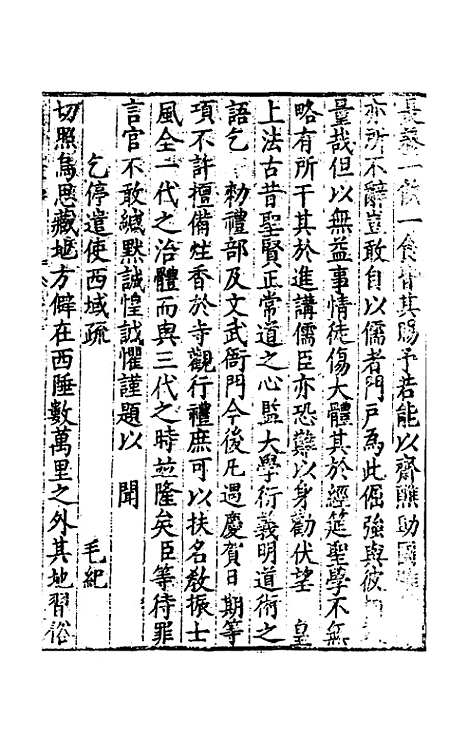 一飲一食皆其賜予若能以齋醮助
亦所不辭豈敢自以儒者門戶為此倔強與彼
量哉但以無益事情徒傷大體其於經筵聖學不無
略有所干其於進講儒臣亦恐難以身勸伏望　皇
上法古昔聖賢正常道之心監大學衍義明道術之
語乞　勑禮部及文武衙門今後凡遇慶賀日期等
項不許擅備牲香於寺觀行禮庶可以扶名教振士
風全一代之治體而與三代之時並隆矣臣等待罪
言官不敢緘默誠惶誠懼謹題以　聞
乞停遣使西域疏　毛紀
切照烏思藏地方僻在西陲數萬里之外其地習俗